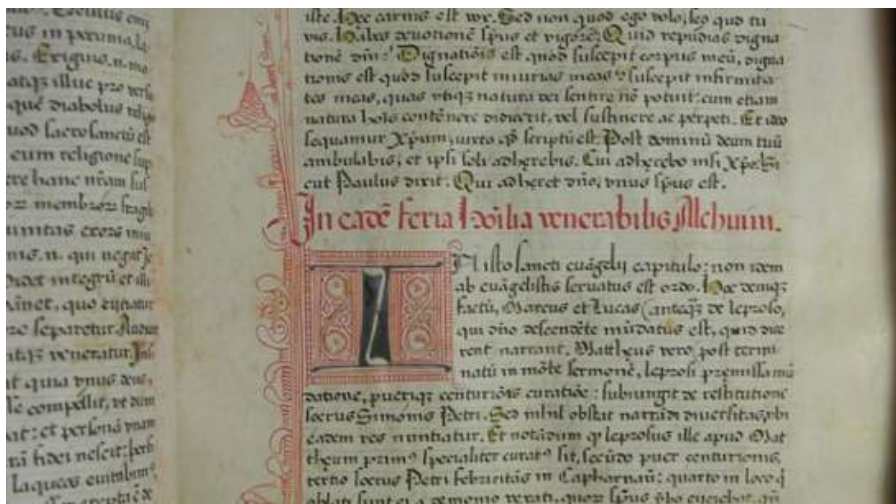 cui in pecunia, la
s. Exiguis. n. mo
atqȝ illuc pro verbi
que diabolus religi
uod sacrosanctũ est
cum religione sup
ere hanc nr̃am sus
membrorȝ fragili
nis. n. qui negat Je
Videt integrũ et illi
ãnet, quo cũtiatur
re separetur. Audiui
itiqȝ veneratur. Insi
it quia vnus deus,
le compellit, vt dum
at: et personã vnam
rã fidei nescit: perfi
laqueos euitabimꝰ
iste. Hec carnis est vox. Sed non quod ego volo, sed quod tu
vis. Habes deuotionẽ spũs et vigorẽ. Quid repudias digna
tionẽ dñi? Dignatiõis est quod suscepit corpus meũ, digna
tionis est quod suscepit iniurias meas ⁊ suscepit infirmita
tes meas, quas vtiqȝ natura dei sentire nõ potuit: cum etiam
natura hoĩs contẽnere didicerit, vel sustinere ac perpeti. Et ideo
sequamur Xp̃um, iuxta qd̃ scriptũ est. Post dominũ deum tuũ
ambulabis, et ipsi soli adherebis. Cui adherebo nisi Xp̃o: Si
cut Paulus dixit. Qui adheret dño, vnus sp̃us est.
In eadẽ feria Homilia venerabilis Alchuini.
IN isto sancti euãgelij capitulo: non idem
ab euãgelistis seruatus est ordo. Hoc deniqȝ
factũ, Marcus et Lucas (anteqȝ de leproso,
qui dño descendẽte mũdatus est, quid dice
rent narrant. Mattheus vero, post termi
natũ in mõte sermonẽ, leprosi premissa mũ
datione, pueriqȝ centuriõis curatiõe: subiungit de restitutione
socrus Simonis Petri. Sed nihil obstat narrãdi diuersitas, vbi
eadem res nuntiatur. Et notãdum qȝ leprosus ille apud Mat
theum primꝰ specialiter curatꝰ sit, secũdo puer centurionis,
tertio socrus Petri febricitãs in Capharnaũ: quarto in loco qȝ
oblati sunt ei a demonio vexati, quorȝ sp̃us vbo eijciebat.